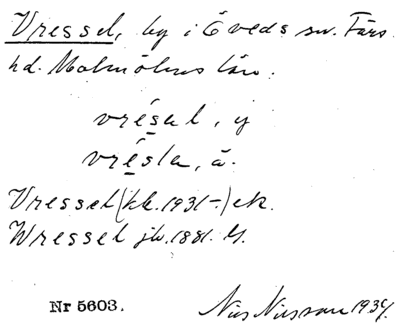 Vressel, by i Öveds sn. Färs
hd. Malmöhus län.
vrésal, y
vrésla, ä.
Vressel (kk. 1931-) ek.
Wressel jb. 1881. G.
Nr 5603.
Nils Nilsson 1934.